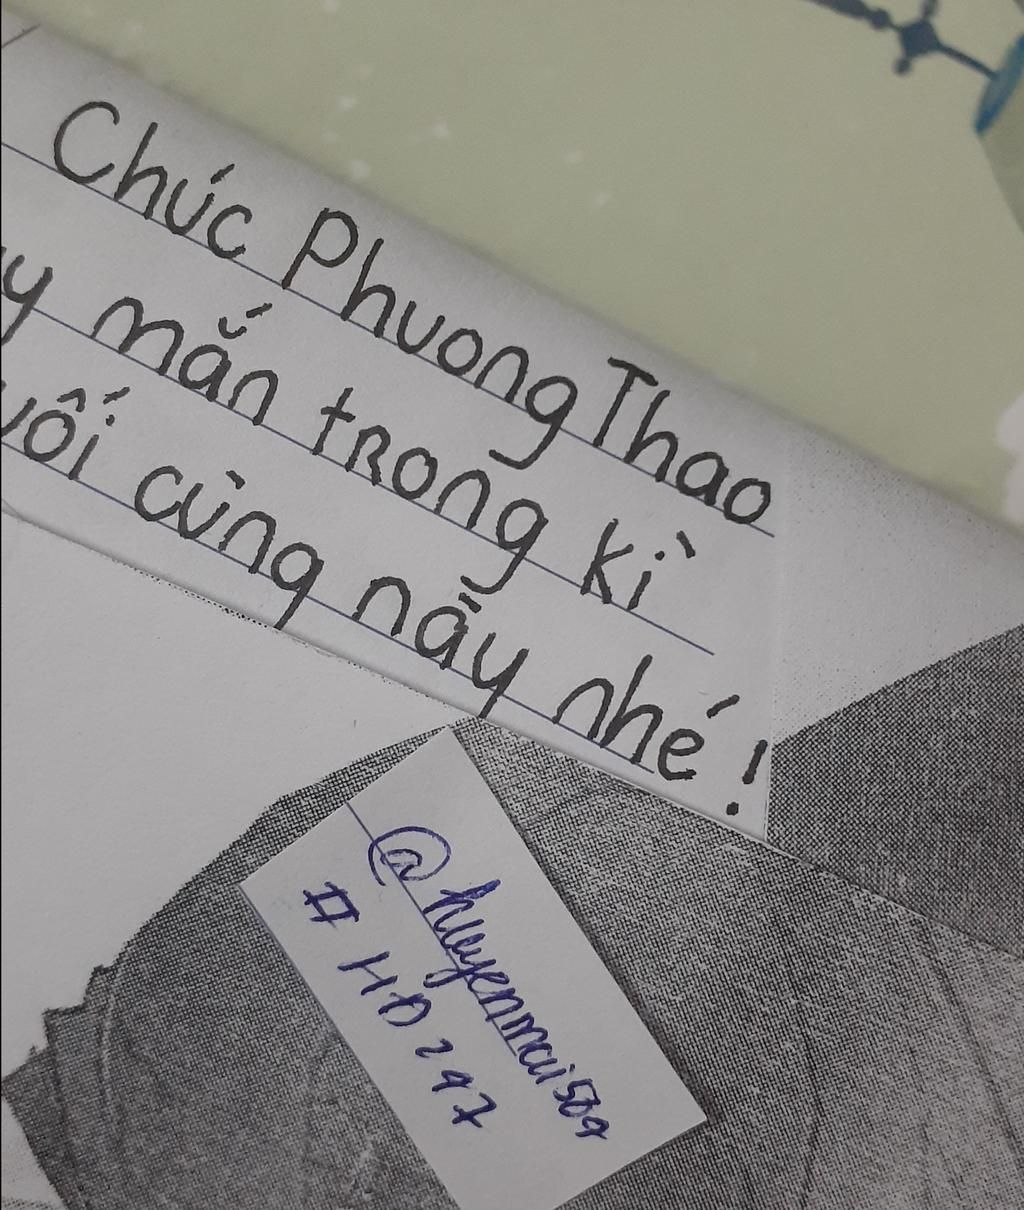 Chúc Phuong Thao
y mắn trong kì
uối cùng này nhé!
@huyenmai504
#HD247